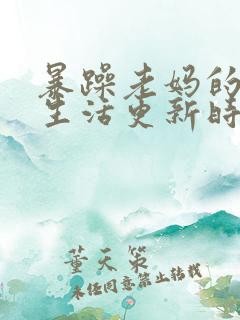 暴躁老妈的
生活更新时
董天策
未经同意禁止转载